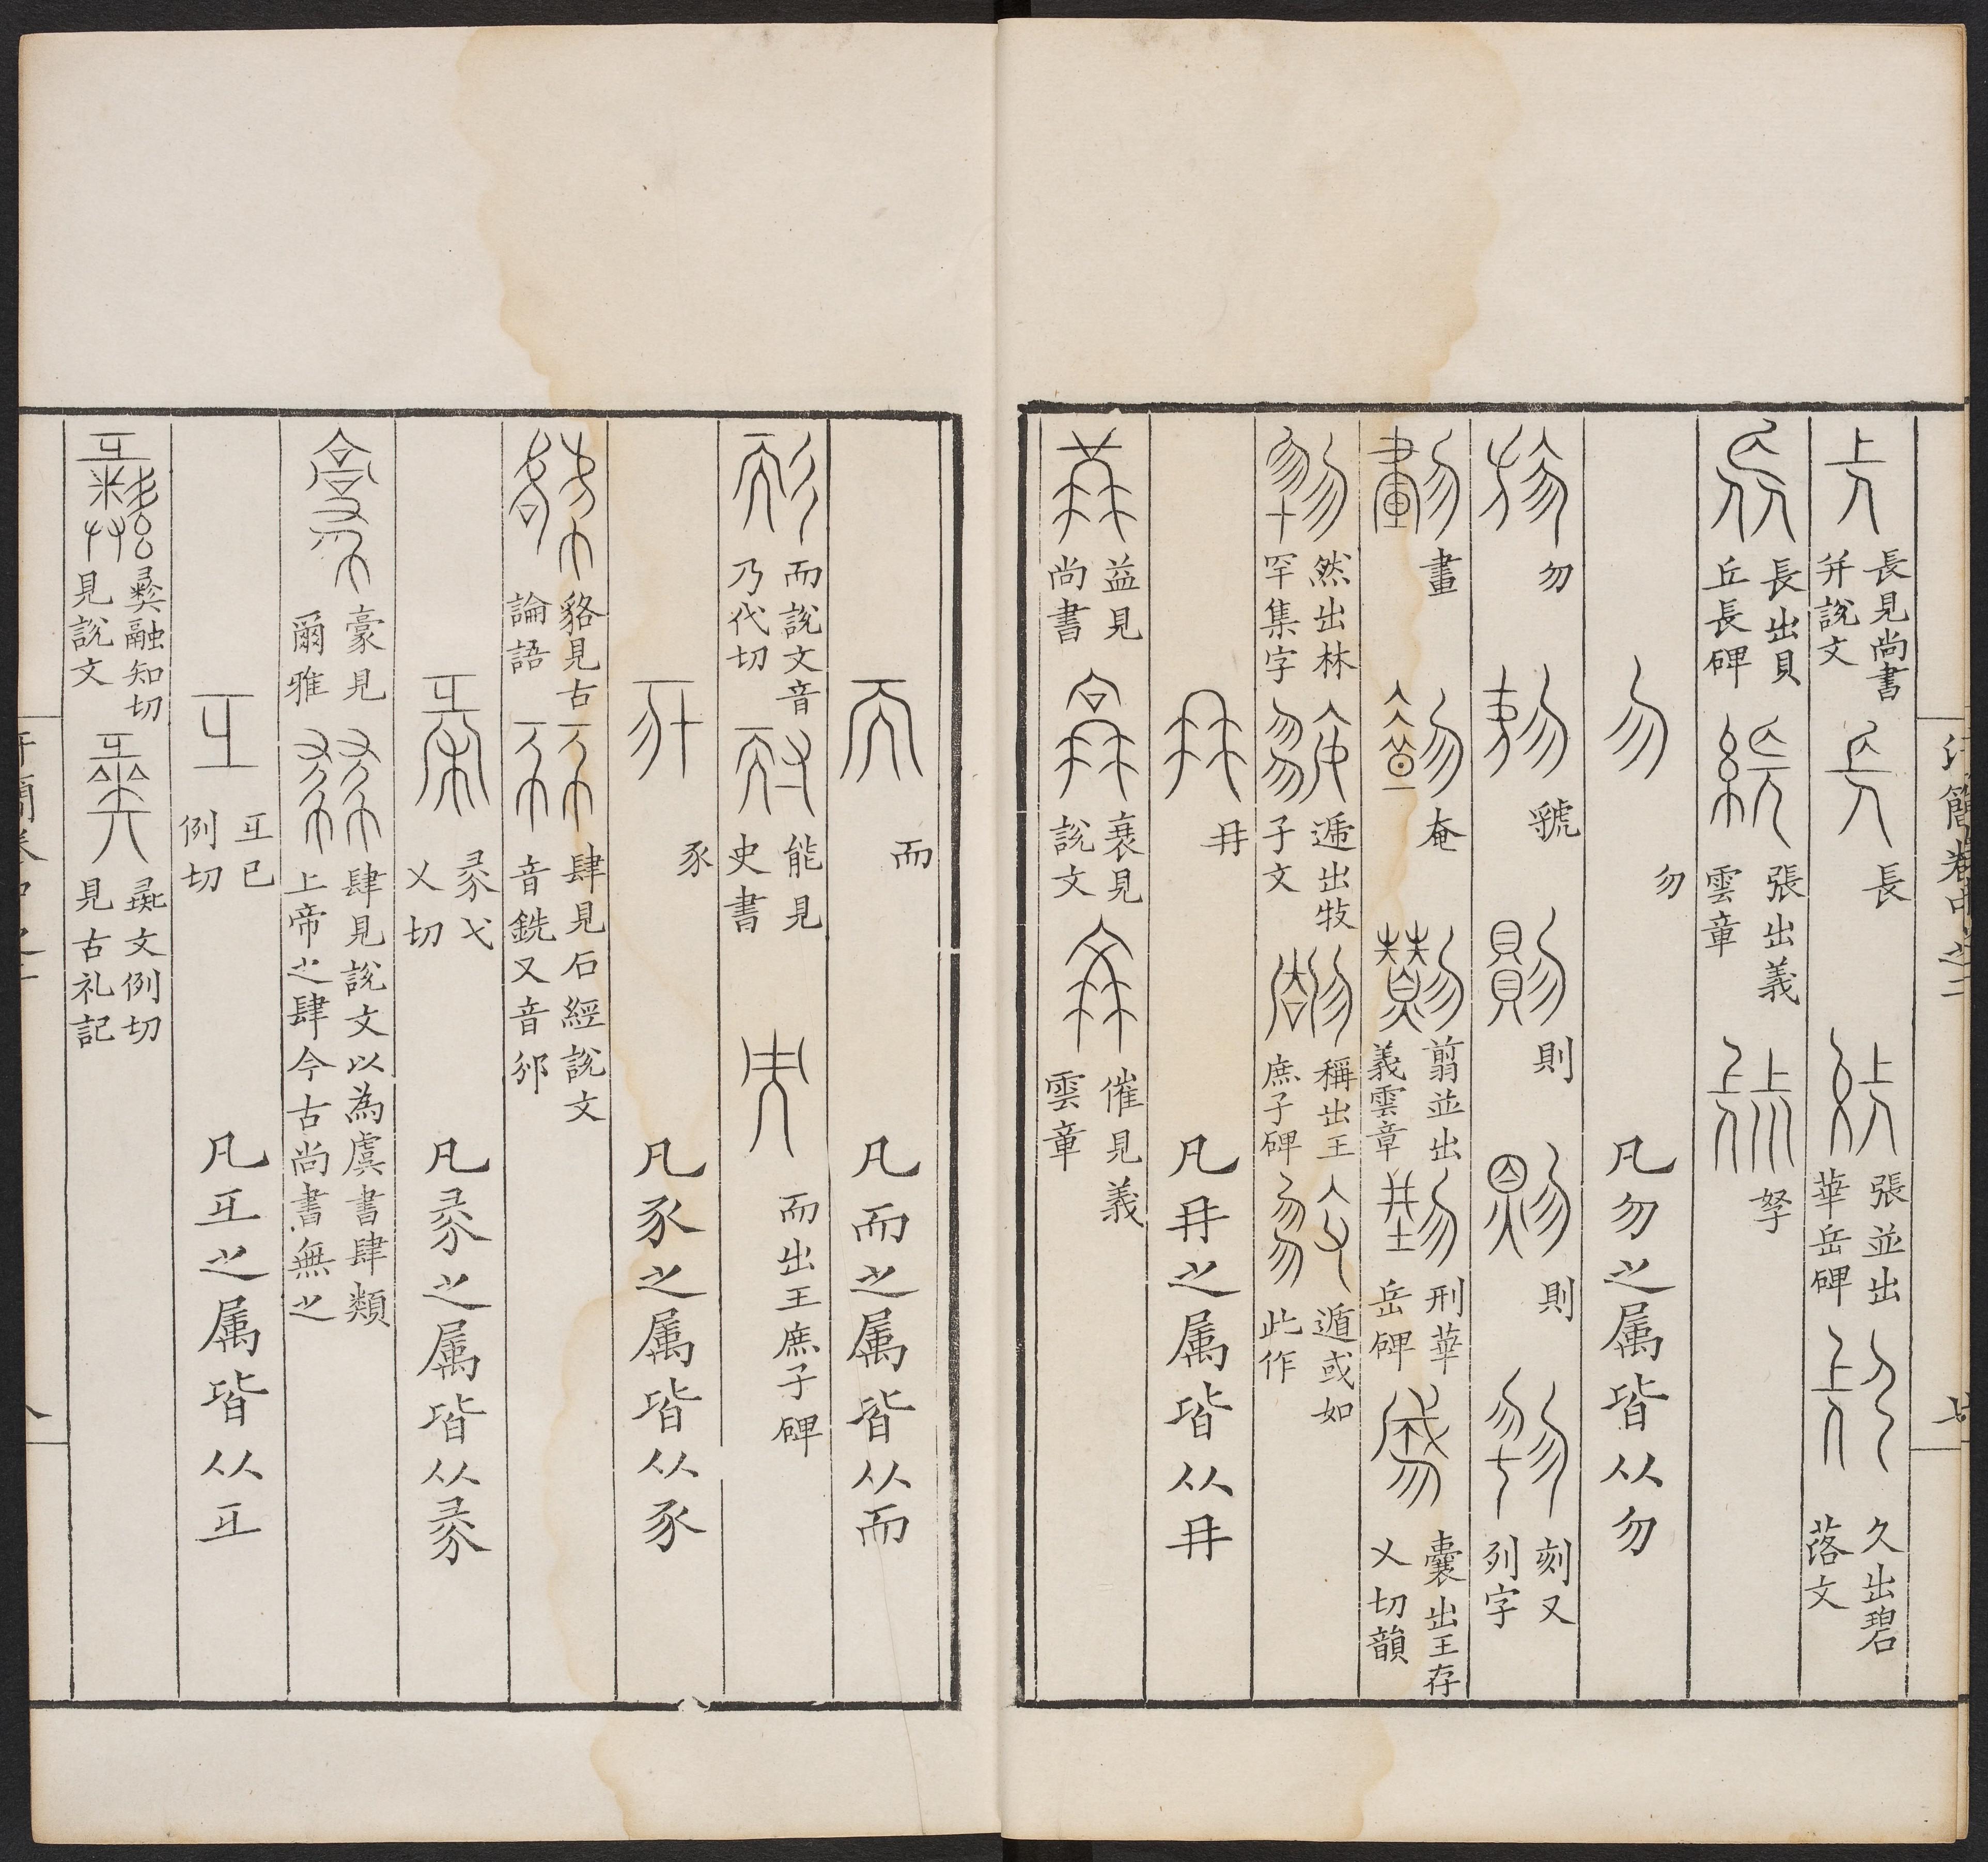 汗簡卷中之二
長見尚書并說文 長 張並出華岳碑 久出碧落文
長出貝丘長碑 張出義雲章 拏
勿 勿 凡勿之属皆从勿
勿 虢 則 則 刻又列字
畫 奄 翦並出義雲章 刑華岳碑 囊出王存乂切韻
然出林罕集字 遞出牧子文 稱出王庶子碑 遁或如此作
冄 凡冄之属皆从冄
益見尚書 衰見說文 催見義雲章
而 凡而之属皆从而
而說文音乃代切 能見史書 而出王庶子碑
豕 凡豕之属皆从豕
貉見古論語 肆見石經說文音銑又音邠
㣇弋乂切 凡㣇之属皆从㣇
豪見爾雅 肆見說文以為虞書肆類上帝之肆今古尚書無之
彑已例切 凡彑之属皆从彑
彜融知切見說文 彘文例切見古礼記